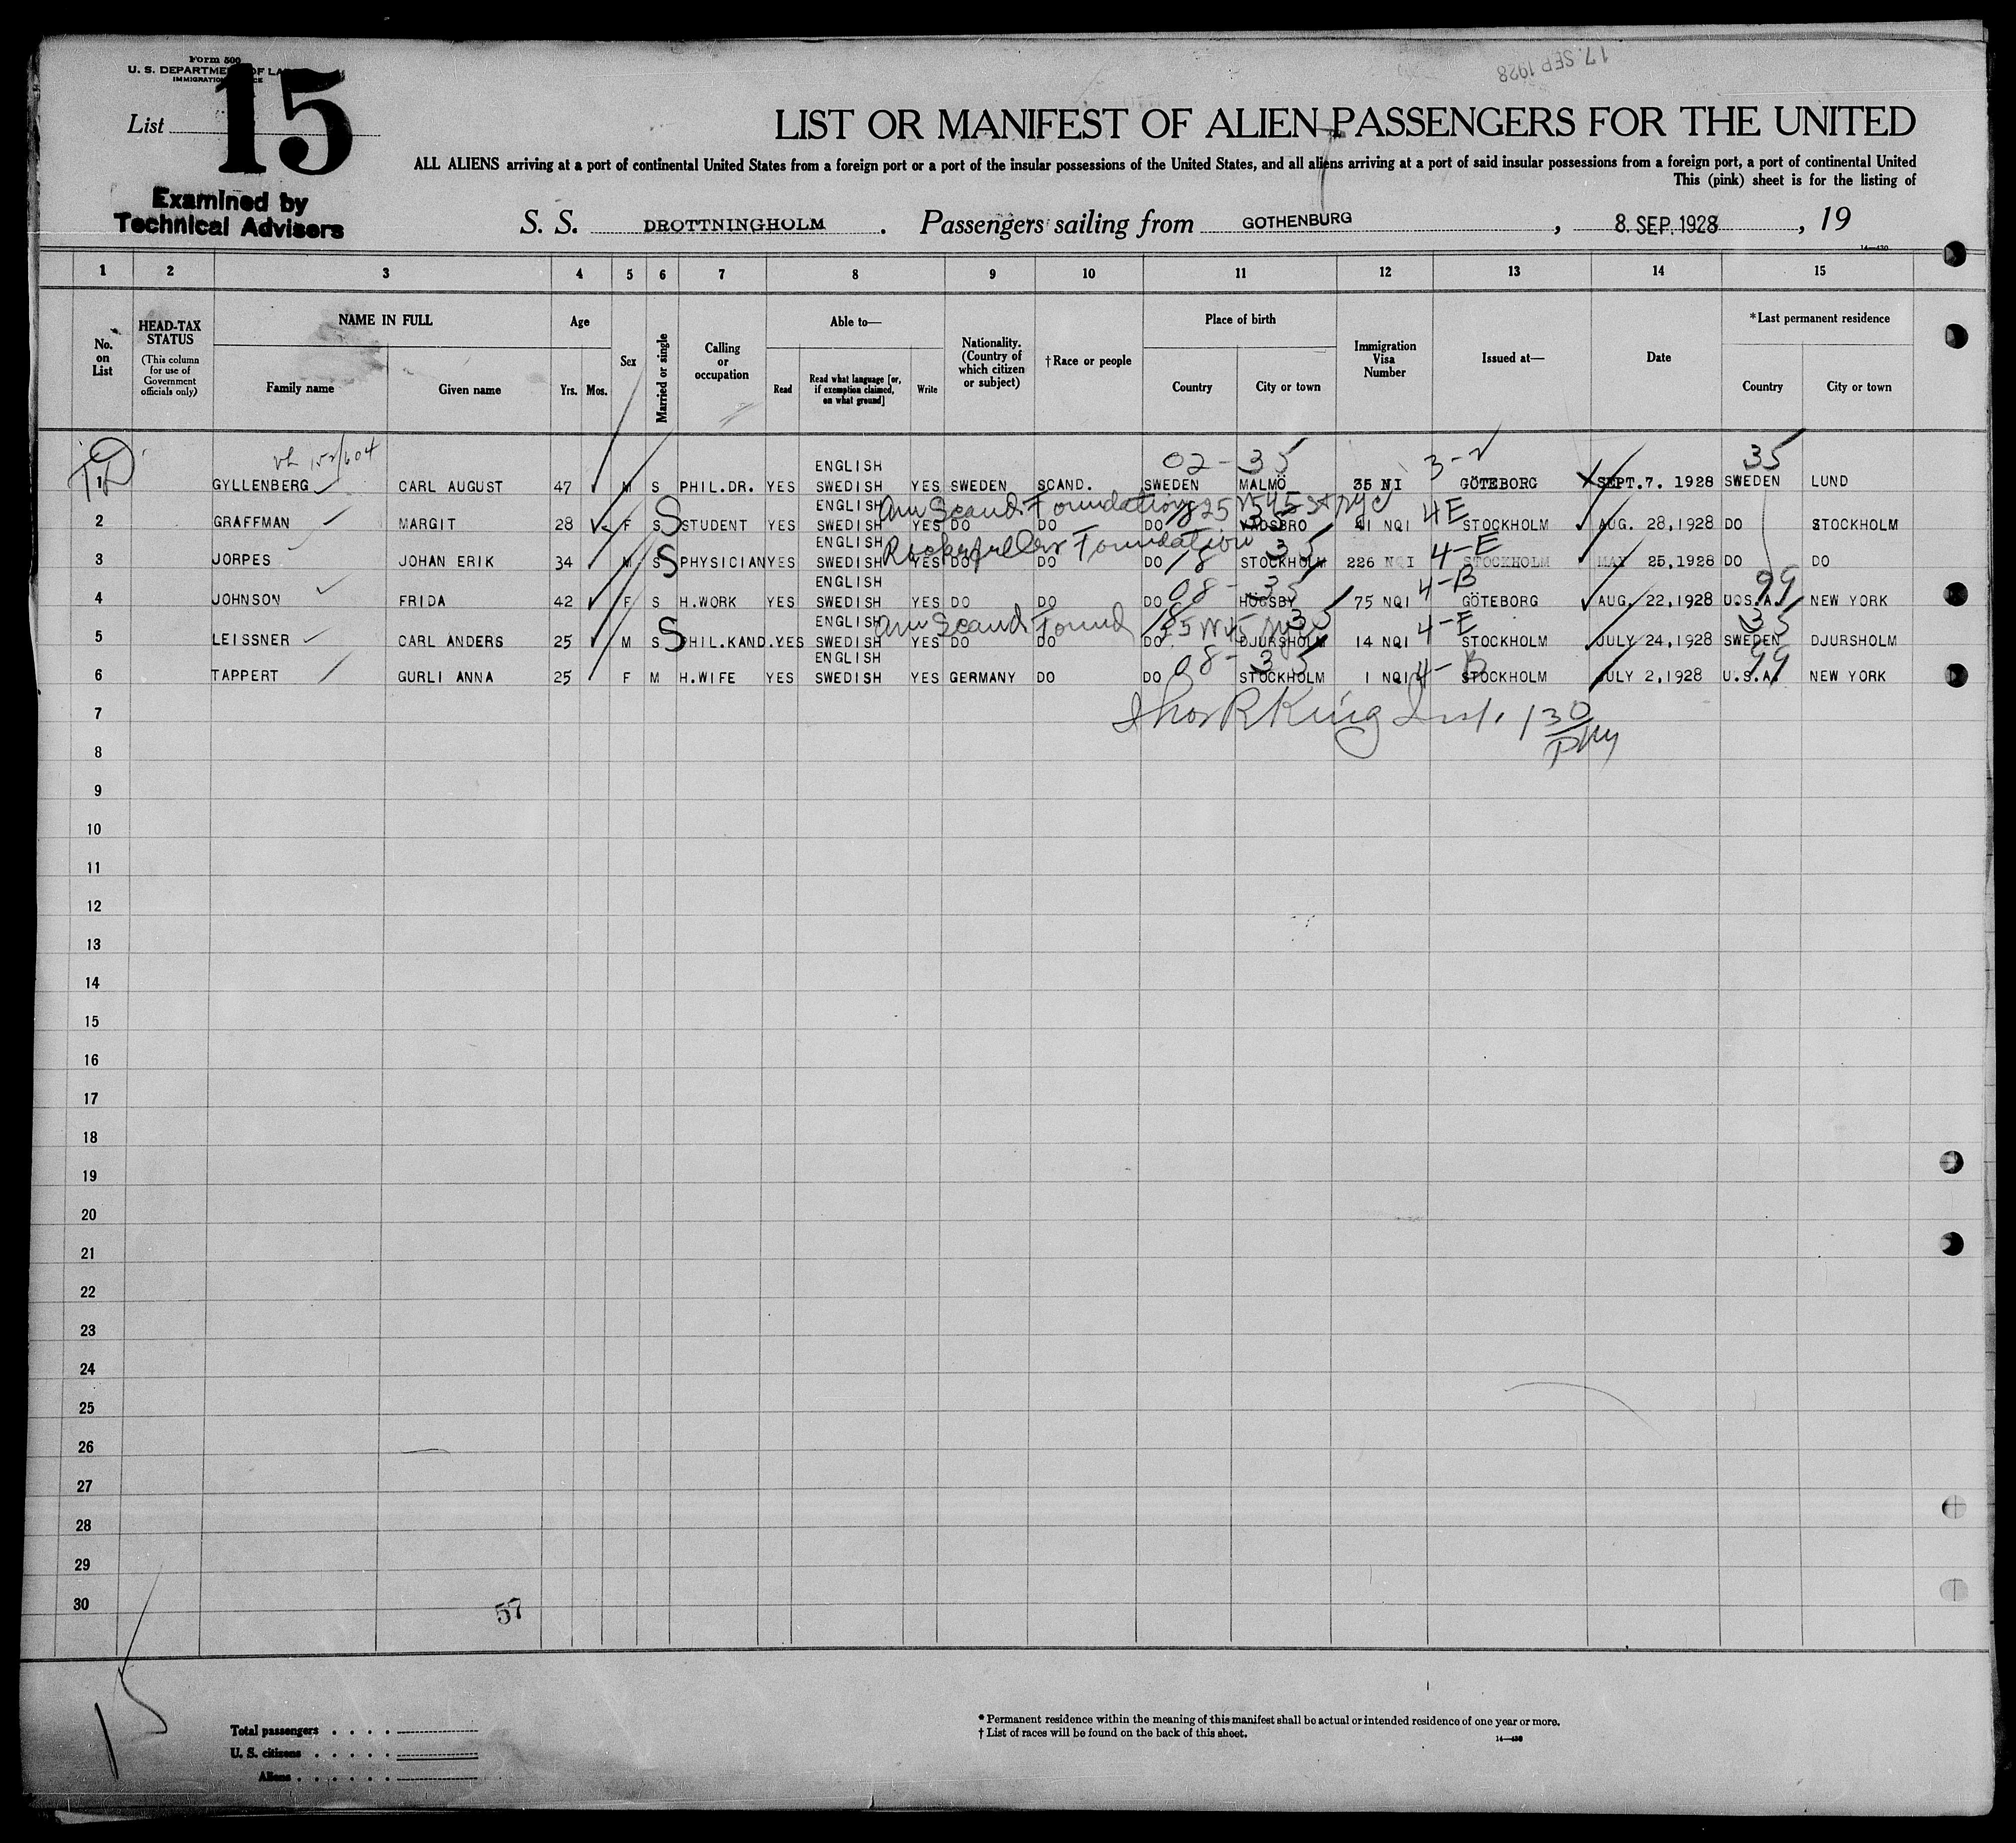 17. SEP 1928
Form 500
U. S. DEPARTMENT OF LA
IMMIGRATION
List 15
LIST OR MANIFEST OF ALIEN PASSENGERS FOR THE UNITED
ALL ALIENS arriving at a port of continental United States from a foreign port or a port of the insular possessions of the United States, and all aliens arriving at a port of said insular possessions from a foreign port, a port of continental United
This (pink) sheet is for the listing of
Examined by
Technical Advisers
S. S. DROTTNINGHOLM . Passengers sailing from GOTHENBURG , 8. SEP. 1928 , 19
1 2 3 4 5 6 7 8 9 10 11 12 13 14 15
No. on List
HEAD-TAX STATUS
(This column for use of Government officials only)
NAME IN FULL
Family name
Given name
Age
Yrs. Mos.
Sex
Married or single
Calling or occupation
Able to—
Read
Read what language [or, if exemption claimed, on what ground]
Write
Nationality. (Country of which citizen or subject)
†Race or people
Place of birth
Country
City or town
Immigration Visa Number
Issued at—
Date
*Last permanent residence
Country
City or town
152/604
02-35 3-2 35
ENGLISH
1 GYLLENBERG CARL AUGUST 47 M S PHIL.DR. YES SWEDISH YES SWEDEN SCAND. SWEDEN MALMÖ 35 NI GÖTEBORG SEPT.7. 1928 SWEDEN LUND
Am Scand. Foundation 25 W 45 St NYC 4E
ENGLISH
2 GRAFFMAN MARGIT 28 F S S STUDENT YES SWEDISH YES DO DO DO VADSBRO 41 NQI STOCKHOLM AUG. 28,1928 DO STOCKHOLM
Rockefeller Foundation 18 35 4-E
ENGLISH
3 JORPES JOHAN ERIK 34 M S S PHYSICIAN YES SWEDISH YES DO DO DO STOCKHOLM 226 NQI STOCKHOLM MAY 25,1928 DO DO
08-35 4-B 99
ENGLISH
4 JOHNSON FRIDA 42 F S H.WORK YES SWEDISH YES DO DO DO HÖGSBY 75 NQI GÖTEBORG AUG. 22,1928 U.S.A. NEW YORK
Am Scand Found 25 W 45 NY 35 4-E 35
ENGLISH
5 LEISSNER CARL ANDERS 25 M S S PHIL.KAND. YES SWEDISH YES DO DO DO DJURSHOLM 14 NQI STOCKHOLM JULY 24,1928 SWEDEN DJURSHOLM
08-35 4-B 99
ENGLISH
6 TAPPERT GURLI ANNA 25 F M H.WIFE YES SWEDISH YES GERMANY DO DO STOCKHOLM 1 NQI STOCKHOLM JULY 2,1928 U.S.A. NEW YORK
7 Thos R King Inst. 130
8
9
10
11
12
13
14
15
16
17
18
19
20
21
22
23
24
25
26
27
28
29
30
57
15
Total passengers . . . .
U. S. citizens . . . . .
Aliens . . . . . .
* Permanent residence within the meaning of this manifest shall be actual or intended residence of one year or more.
† List of races will be found on the back of this sheet.